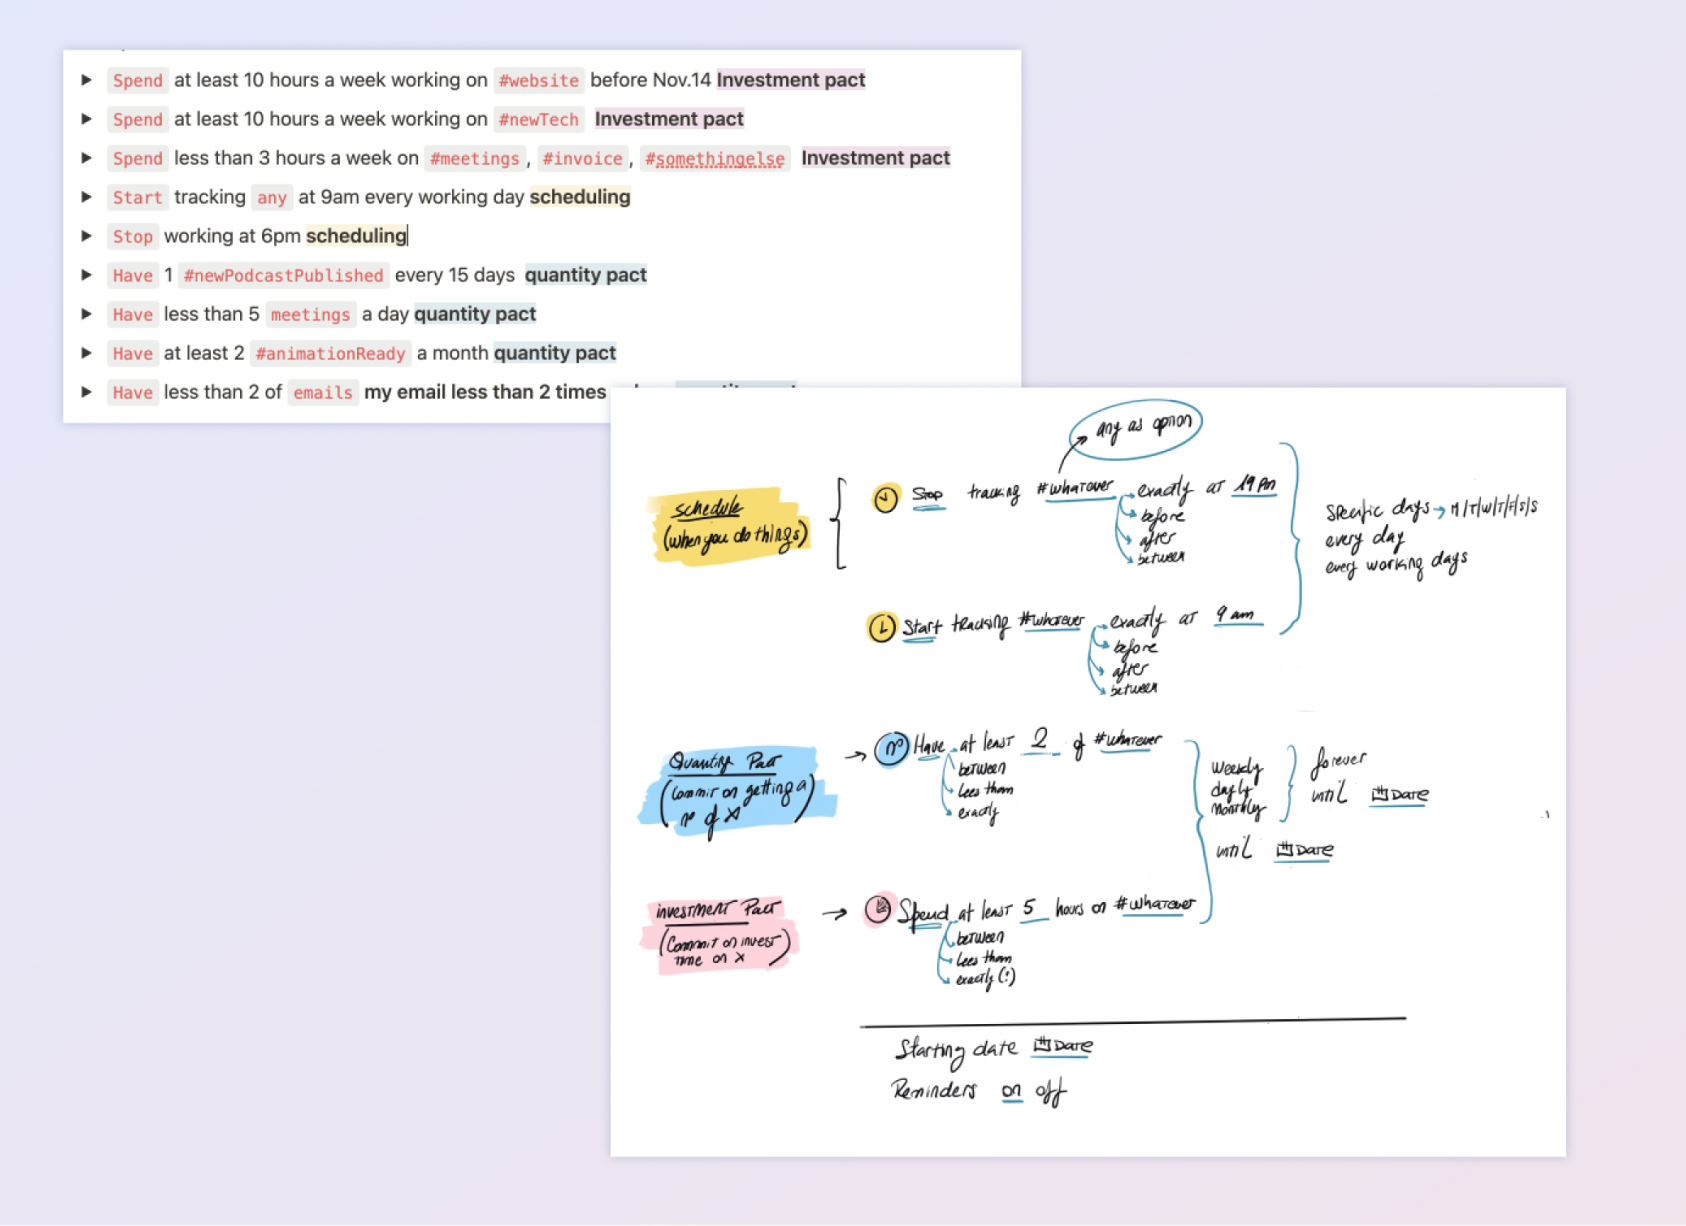 Spend at least 10 hours a week working on #website before Nov.14 Investment pact
Spend at least 10 hours a week working on #newTech Investment pact
Spend less than 3 hours a week on #meetings, #invoice, #somethingelse Investment pact
Start tracking any at 9am every working day scheduling
Stop working at 6pm scheduling
Have 1 #newPodcastPublished every 15 days quantity pact
Have less than 5 meetings a day quantity pact
Have at least 2 #animationReady a month quantity pact
Have less than 2 of emails my email less than 2 times
any as option
schedule
(when you do things)
Stop tracking #whatever exactly at 19 pm
before
after
between
Specific days → M/T/W/T/F/S/S
every day
every working days
Start tracking #whatever exactly at 9 am
before
after
between
Quantity Pact
(commit on getting a
nº of X)
nº Have at least 2 of #whatever
between
lees than
exactly
Weekly
dayly
monthly
forever
until Date
until Date
investment Pact
(Commit on invest
time on X)
Spend at least 5 hours on #whatever
between
lees than
exactly (!)
Starting date Date
Reminders on off